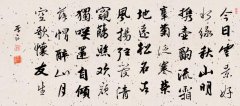 今日雲景好
水綠秋山明
携壺酌流霞
搴菊泛寒榮
地遠松石古
風揚弦管清
窺觴照歡顏
獨笑還自傾
落帽醉山月
空歌懷友生